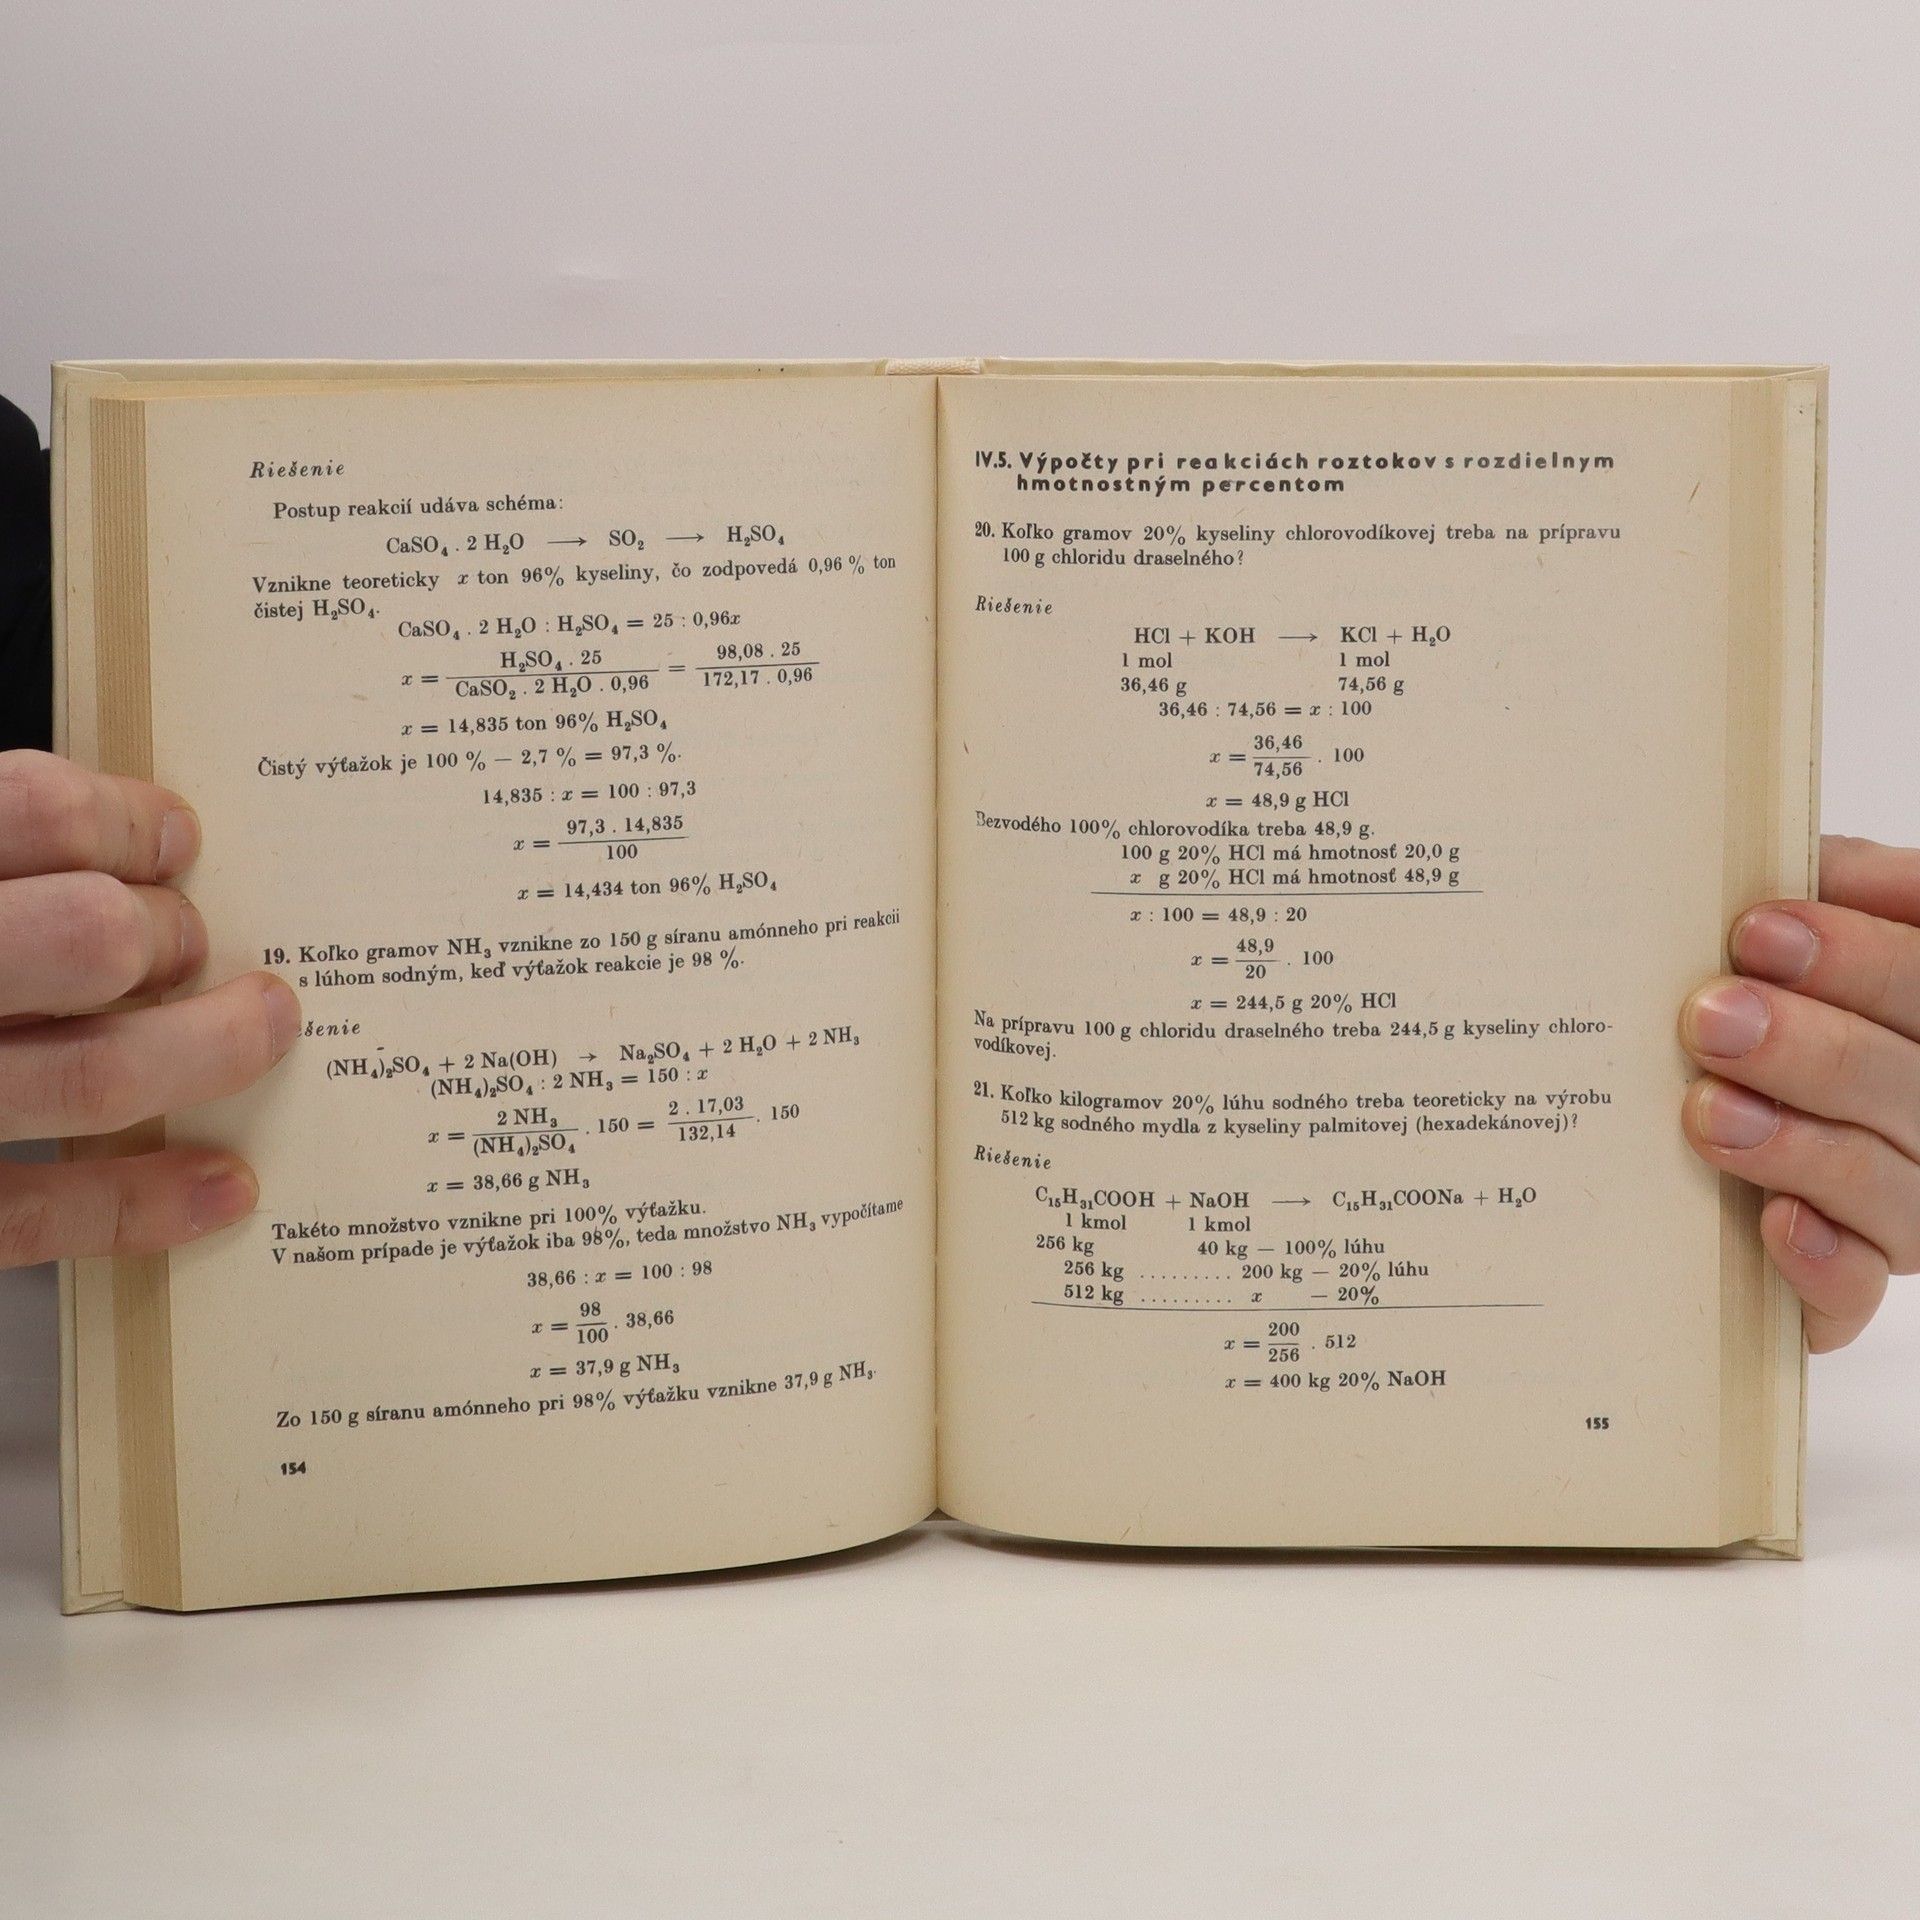 Riešenie
Postup reakcií udáva schéma:
CaSO₄ . 2 H₂O ⟶ SO₂ ⟶ H₂SO₄
Vznikne teoreticky x ton 96% kyseliny, čo zodpovedá 0,96 % ton
čistej H₂SO₄.
CaSO₄ . 2 H₂O : H₂SO₄ = 25 : 0,96x
x = H₂SO₄ . 25 / CaSO₂ . 2 H₂O . 0,96 = 98,08 . 25 / 172,17 . 0,96
x = 14,835 ton 96% H₂SO₄
Čistý výťažok je 100 % — 2,7 % = 97,3 %.
14,835 : x = 100 : 97,3
x = 97,3 . 14,835 / 100
x = 14,434 ton 96% H₂SO₄
19. Koľko gramov NH₃ vznikne zo 150 g síranu amónneho pri reakcii
s lúhom sodným, keď výťažok reakcie je 98 %.
šenie
(NH₄)₂SO₄ + 2 Na(OH) → Na₂SO₄ + 2 H₂O + 2 NH₃
(NH₄)₂SO₄ : 2 NH₃ = 150 : x
x = 2 NH₃ / (NH₄)₂SO₄ . 150 = 2 . 17,03 / 132,14 . 150
x = 38,66 g NH₃
Takéto množstvo vznikne pri 100% výťažku.
V našom prípade je výťažok iba 98%, teda množstvo NH₃ vypočítame
38,66 : x = 100 : 98
x = 98 / 100 . 38,66
x = 37,9 g NH₃
Zo 150 g síranu amónneho pri 98% výťažku vznikne 37,9 g NH₃.
154
IV.5. Výpočty pri reakciách roztokov s rozdielnym
hmotnostným percentom
20. Koľko gramov 20% kyseliny chlorovodíkovej treba na prípravu
100 g chloridu draselného?
Riešenie
HCl + KOH ⟶ KCl + H₂O
1 mol 1 mol
36,46 g 74,56 g
36,46 : 74,56 = x : 100
x = 36,46 / 74,56 . 100
x = 48,9 g HCl
Bezvodého 100% chlorovodíka treba 48,9 g.
100 g 20% HCl má hmotnosť 20,0 g
x g 20% HCl má hmotnosť 48,9 g
x : 100 = 48,9 : 20
x = 48,9 / 20 . 100
x = 244,5 g 20% HCl
Na prípravu 100 g chloridu draselného treba 244,5 g kyseliny chloro-
vodíkovej.
21. Koľko kilogramov 20% lúhu sodného treba teoreticky na výrobu
512 kg sodného mydla z kyseliny palmitovej (hexadekánovej)?
Riešenie
C₁₅H₃₁COOH + NaOH ⟶ C₁₅H₃₁COONa + H₂O
1 kmol 1 kmol
256 kg 40 kg — 100% lúhu
256 kg ......... 200 kg — 20% lúhu
512 kg ......... x — 20%
x = 200 / 256 . 512
x = 400 kg 20% NaOH
155